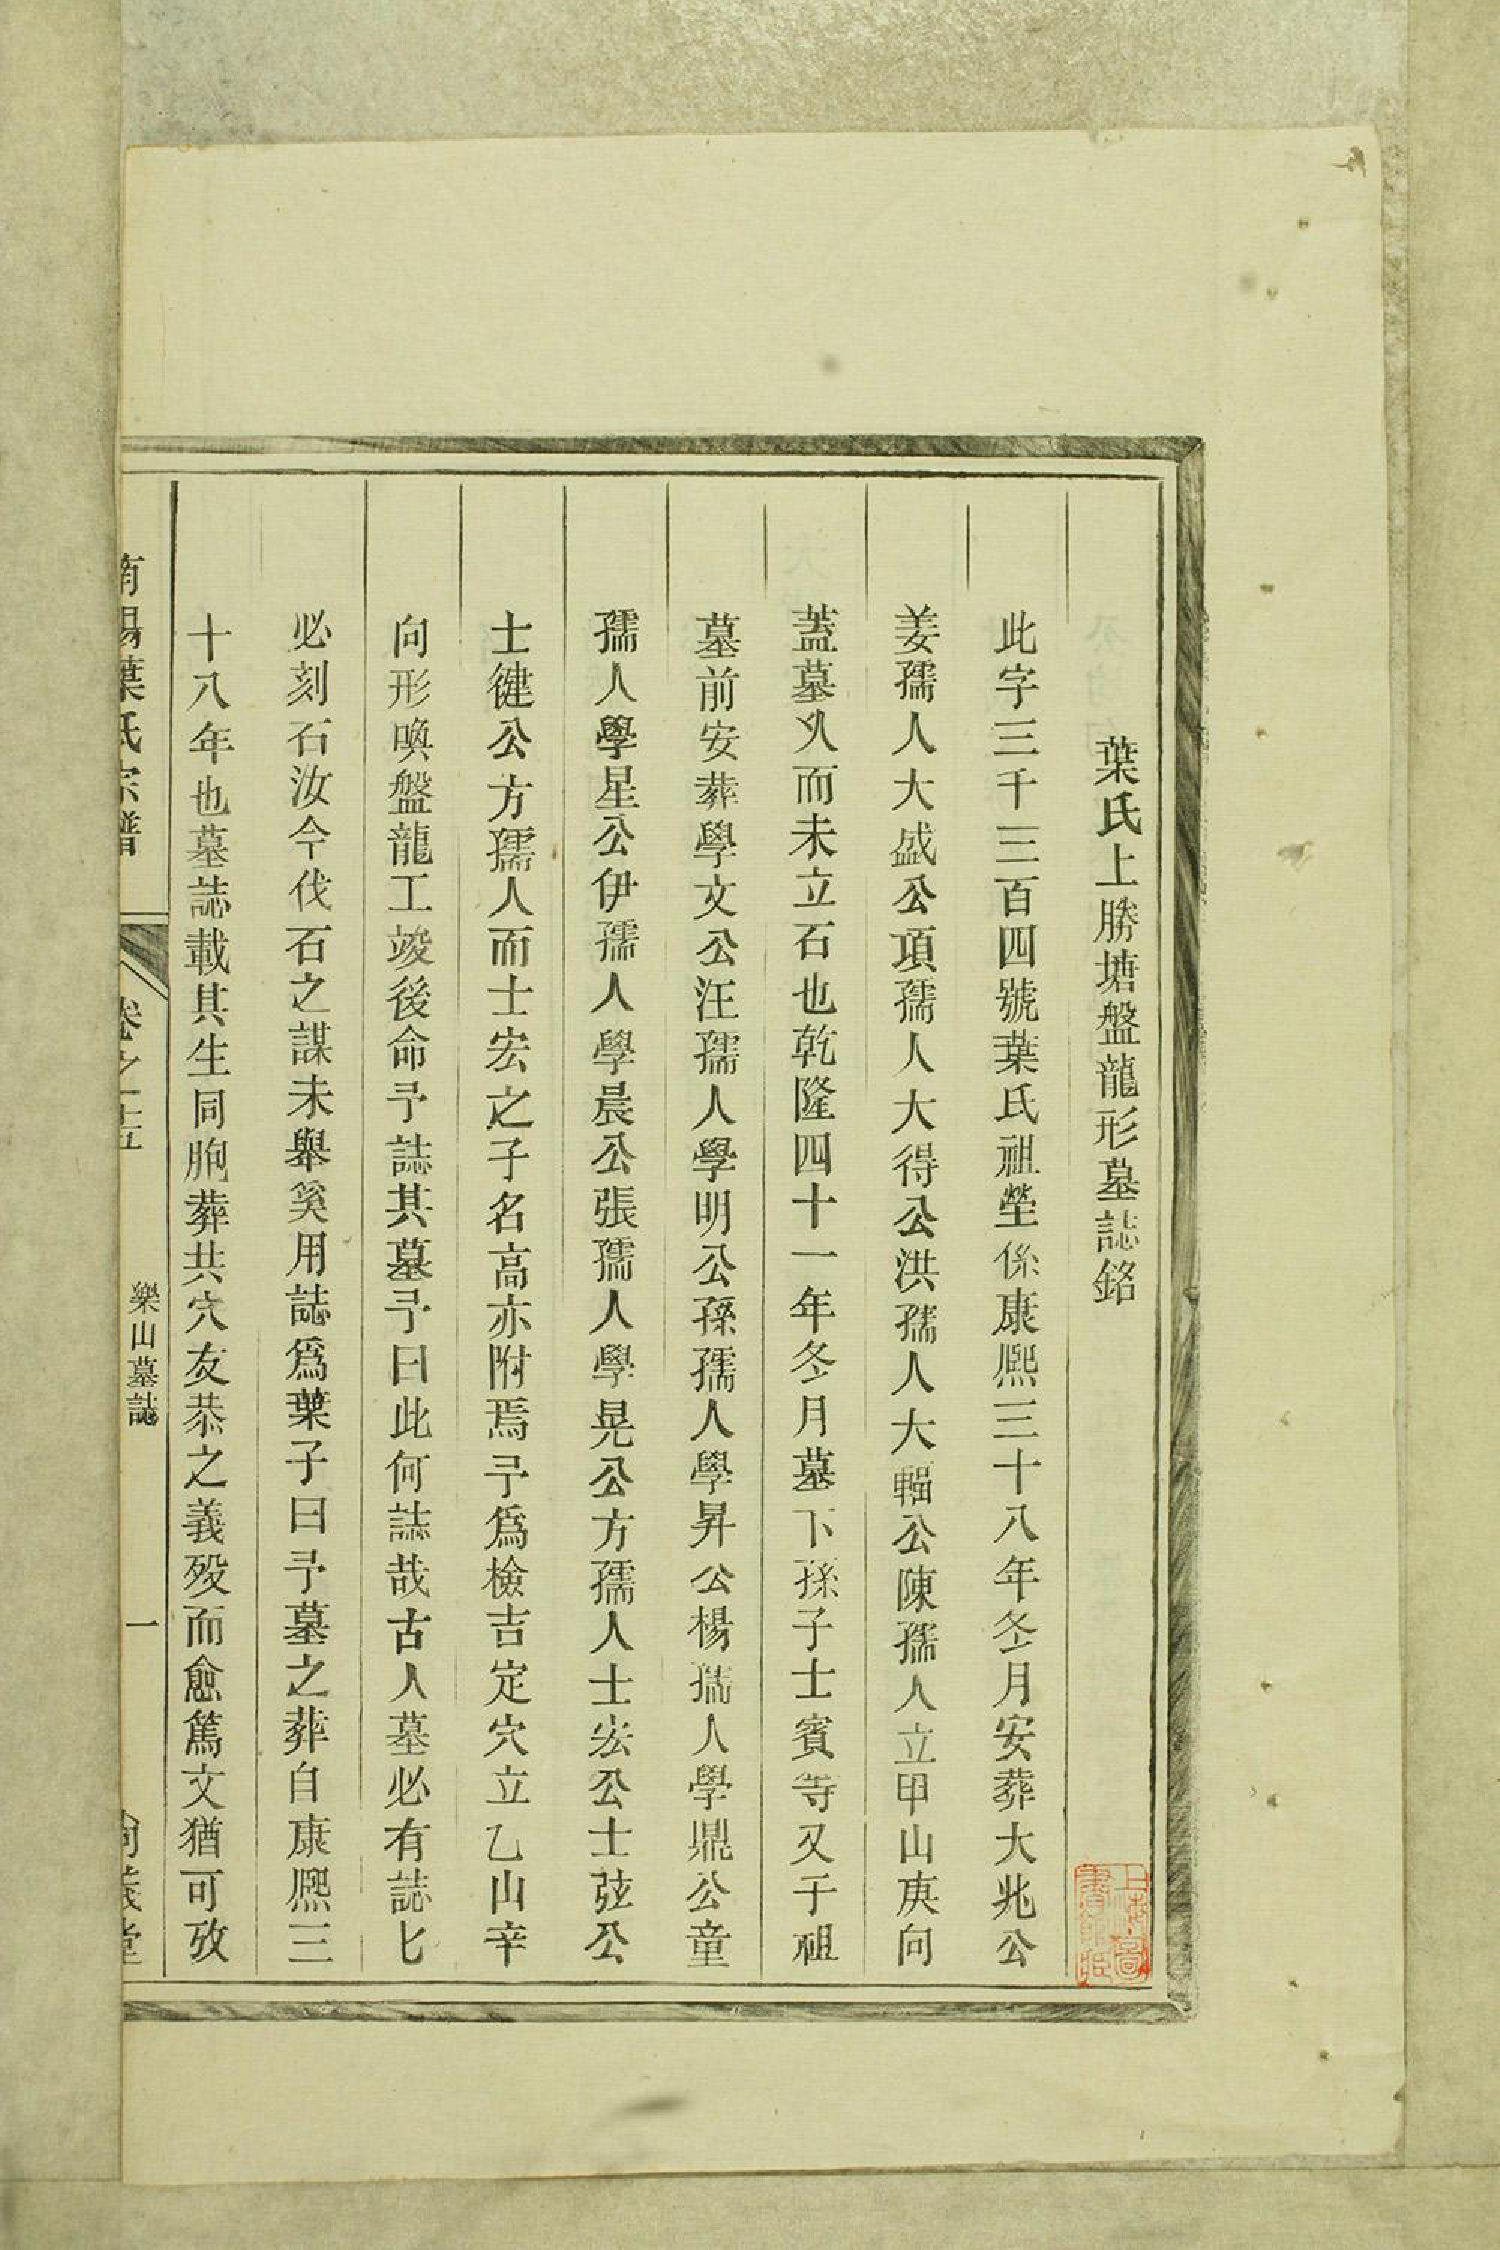 葉氏上勝塘盤龍形墓誌銘
此字三千三百四號葉氏祖塋係康熙三十八年冬月安葬大兆公
姜孺人大盛公項孺人大得公洪孺人大輻公陳孺人立甲山庚向
蓋墓乆而未立石也乾隆四十一年冬月墓下孫子士賓等又于祖
墓前安葬學文公汪孺人學明公孫孺人學昇公楊孺人學鼎公童
孺人學星公伊孺人學晨公張孺人學晃公方孺人士宏公士弦公
士健公方孺人而士宏之子名高亦附焉予爲檢吉定穴立乙山辛
向形喚盤龍工竣後命予誌其墓予曰此何誌哉古人墓必有誌匕
必刻石汝今伐石之謀未舉奚用誌爲葉子曰予墓之葬自康熙三
十八年也墓誌載其生同胞葬共穴友恭之義歿而愈篤文猶可攷
南陽葉氏宗譜
卷之十五
樂山墓誌
一
上海圖書館藏